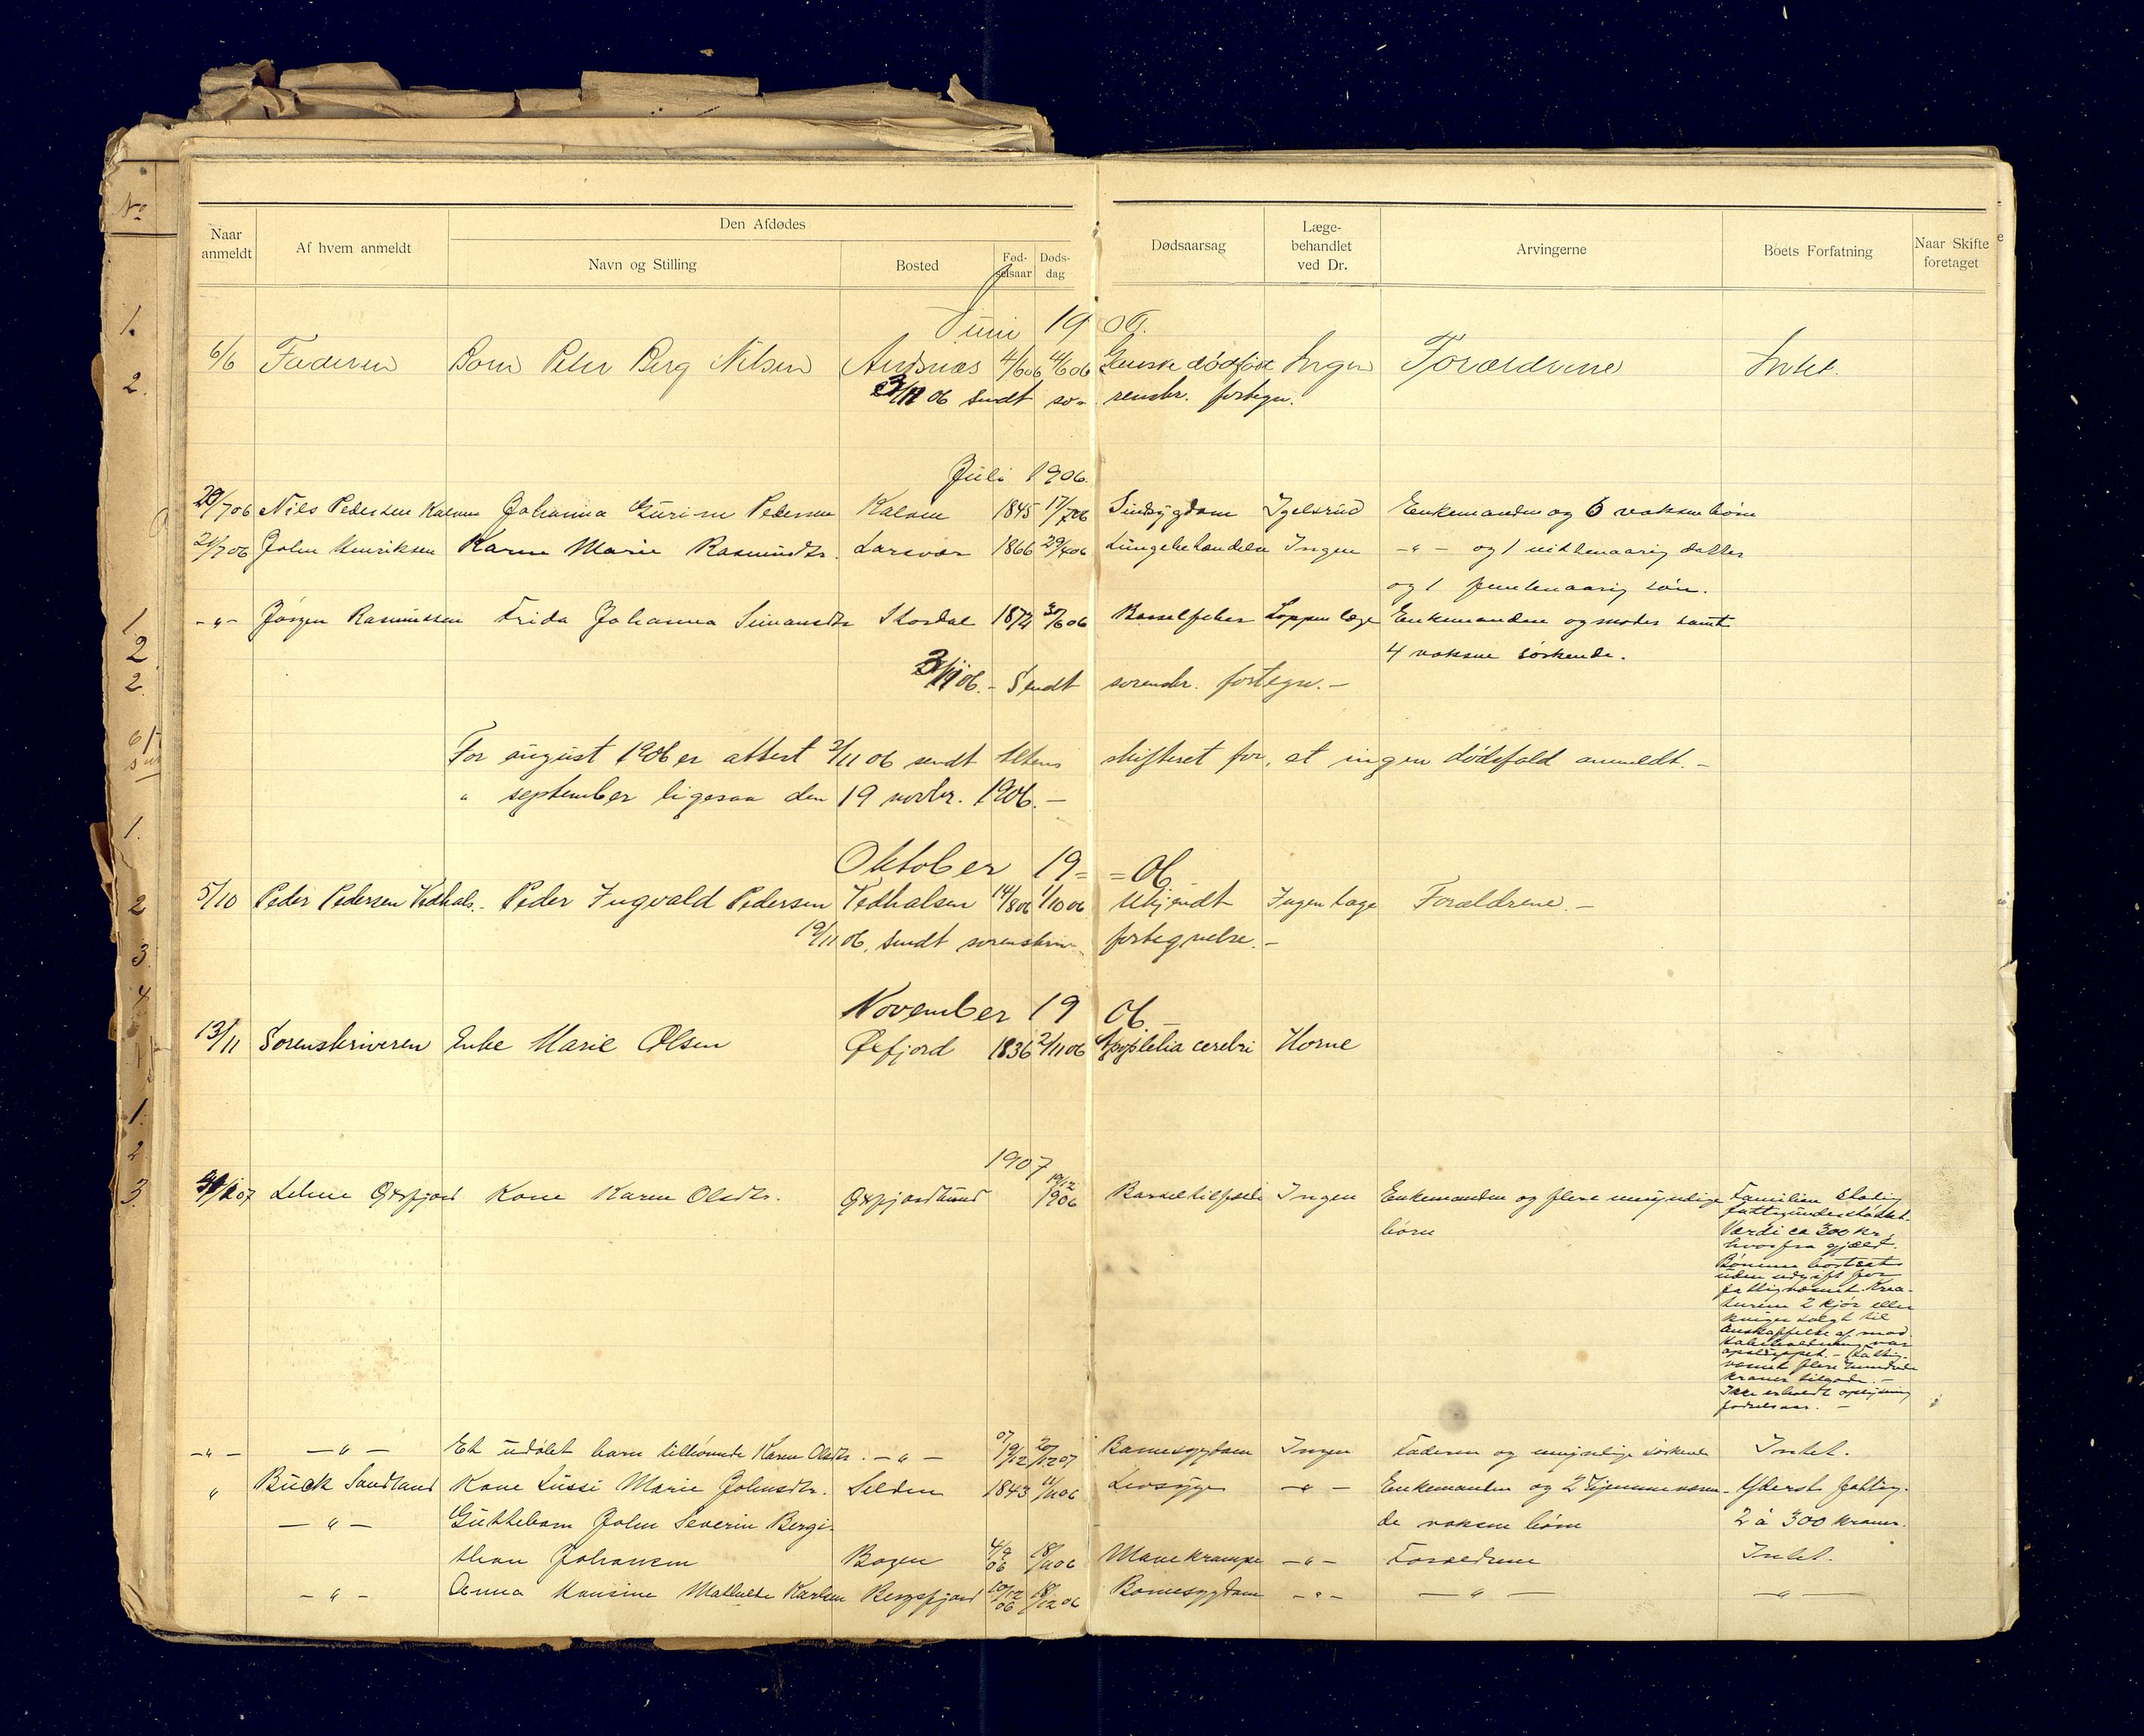 No
Naar anmeldt Af hvem anmeldt Den Afdødes Navn og Stilling Bosted Fødselsaar Dødsdag Dødsaarsag Lægebehandlet ved Dr. Arvingerne Boets Forfatning Naar Skifte foretaget
Juni 1906.
6/6 Faderen Barn Peter Berg Nilsen Andsnæs 4/6 06 4/6 06 Ganske dødfødt Ingen Forældrene Intet.
3/11 06 sendt sorenskr. fortegn.
Juli 1906.
20/7 06 Nils Pedersen Johanna Gurine Pedersen 1845 17/7 06 Sindsygdom Igelsrud Enkemanden og 6 voksne børn
21/7 06 John Henriksen Karen Marie Rasmusdtr. Larsvær 1866 29/4 06 Ingen -"- og 1 nittenaarig datter
og 1 femtenaarig søn.
-"- Jørgen Rasmussen Frida Johanna Simonsdtr. Skosdal 1874 30/6 06 Barselfeber Loppen læge Enkemanden og moder samt
4 voksne søskende.
3/11 06. - Sendt sorenskr. fortegn. -
For august 1906 er attest 3/11 06 sendt Altens skifteret for, at ingen dødsfald anmeldt. -
" september ligesaa den 19 novbr. 1906. -
Oktober 19= =06
5/10 Peder Pedersen Vedhals. Peder Ingvald Pedersen Vedhalsen 14/8 06 1/10 06 Ukjendt Ingen læge Forældrene. -
19/11 06, sendt sorenskriv. fortegnelse. -
November 1906
13/11 Sorenskriveren Enke Marie Olsen Øxfjord 1836 2/11 06 cerebri Horne
1907
07 Lehne Øxfjord Kone Karen Olsdtr. Øxfjordbund 19/12 1906 Ingen Enkemanden og flere umyndige børn
Familien stadig
fattigunderstøttet.
Værdi ca 300 kr,
hvorfra gjæld.
Børnene bortsat
uden udgift for
fattigvæsenet. Krea-
turene 2 kjør eller
kviger solgt til
anskaffelse af mad.
var
- Fattig-
væsenet flere hundrede
kroner tilgode. -
Ikke erholdt oplysning
fødselsaar. -
-"- -"- Et udøbt barn tilhørende Karen Olsdtr. -"- 19/12 07 20/12 07 Barnesygdom Ingen Faderen og umyndige søskende Intet.
" Buck Sandland Kone Lussi Marie Johnsdtr. Selden 1843 11/11 06 -"- Enkemanden og 2 hjemmeværen- Yderst fattig.
-"- Guttebarn John Severin Bergi- de voksne børn 2 à 300 kroner.
than Johansen Bogen 4/9 06 18/11 06 Mavekrampe -"- Forældrene Intet.
-"- Anna Hansine Mathilde Karlsen Bergsfjord 10/12 06 18/12 06 Barnesygdom -"- -"- -"-